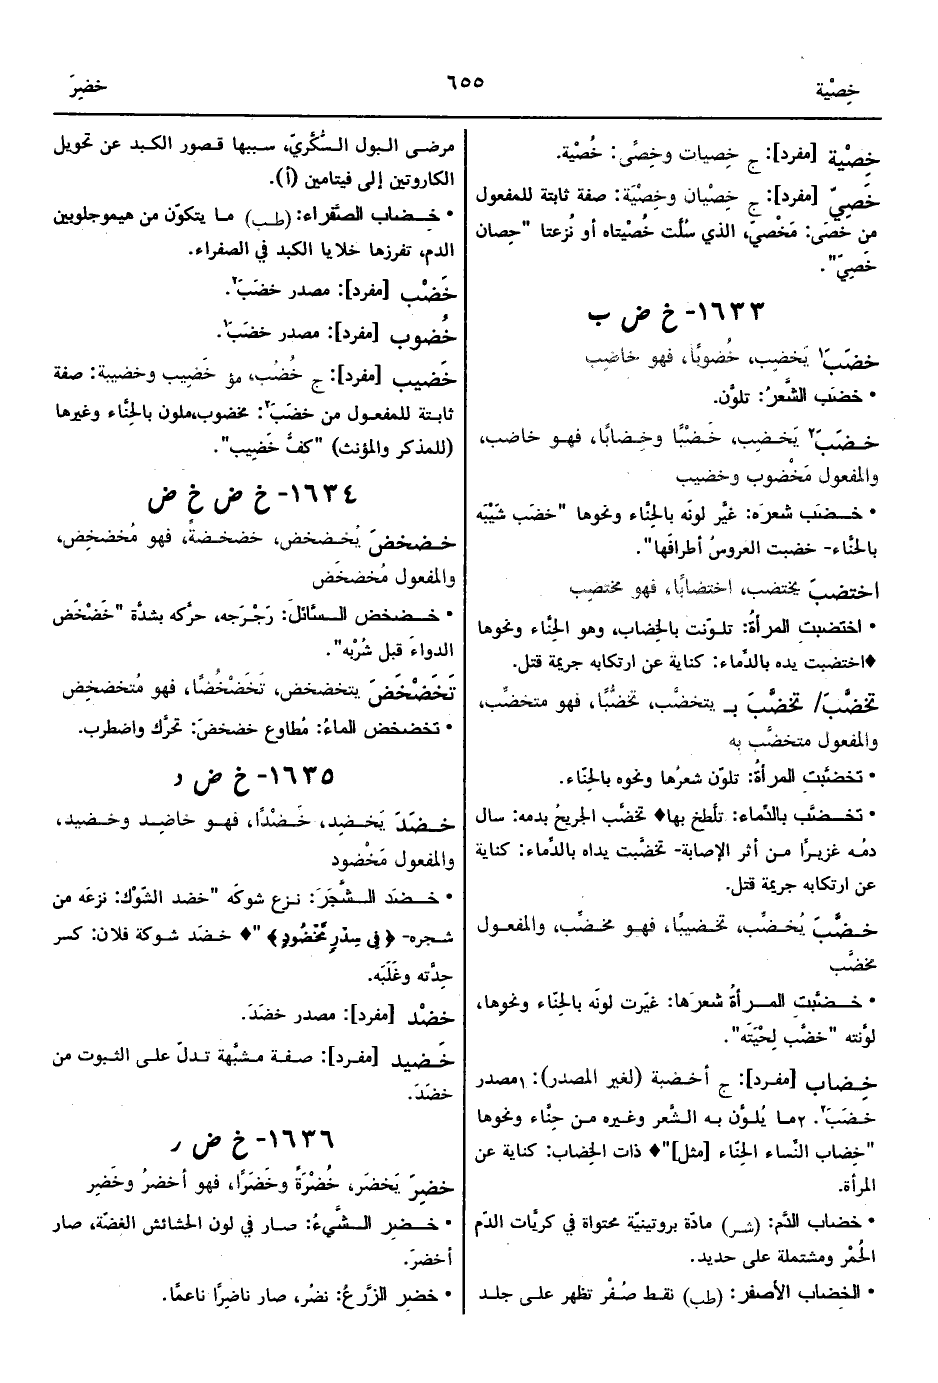 خِصْية
٦٥٥
خضِرَ
خِصْية [مفرد]: ج خِصيات وخِصًى: خُصْية.
خَصِيّ [مفرد]: ج خِصْيان وخِصْيَة: صفة ثابتة للمفعول
من خصَى: مَخْصيّ، الذي سُلَّت خُصْيتاه أو نُزعتا "حِصان
خَصِيّ".
١٦٣٣- خ ض ب
خضَبَ١ يَخضِب، خُضوبًا، فهو خاضِب
• خضَب الشَّعرُ: تلوَّن.
خـضَـبَ٢ يَخـضِب، خَـضْبًا وخِـضابًا، فهـو خاضب،
والمفعول مَخْضوب وخضيب
• خـــضَب شعرَه: غيَّر لونَه بالحِنَّاء ونحوها "خضَب شَيْبَه
بالحنَّاء- خضبت العروسُ أطرافَها".
اختضبَ يختضب، اختضابًا، فهو مختضِب
• اختضبت المرأةُ: تلوّنت بالخِضاب، وهو الحِنَّاء ونحوها
♦اختضبت يده بالدِّماء: كناية عن ارتكابه جريمة قتل.
تخضَّبَ/ تخضَّبَ بـ يتخضَّب، تخضُّبًا، فهو متخضِّب،
والمفعول متخضَّب به
• تخضَّبت المرأةُ: تلوّن شعرُها ونحوه بالحِنَّاء.
• تخـــضَّب بالدِّماء: تلَّطخ بها♦ تخضَّب الجريحُ بدمه: سال
دمُـه غزيـرًا مـن أثر الإصابة- تخضَّبت يداه بالدِّماء: كناية
عن ارتكابه جريمة قتل.
خـضَّـبَ يُخـضِّب، تخـضيبًا، فهـو مخـضِّب، والمفعـول
مخضَّب
• خـــضَّبت المـــرأةُ شعرَها: غيّرت لونَه بالحِنَّاء ونحوها،
لوَّنته "خضَّب لِحْيَتَه".
خِـضاب [مفـرد]: ج أخـضبة (لغير المصدر): ١مصدر
خـضَـبَ٢. ٢مـا يُلـوَّن بـه الشَّعر وغيره مـن حِنَّاء ونحوها
"خِضاب النِّساء الحِنَّاء [مثل]"♦ ذات الخِضاب: كناية عن
المرأة.
• خضاب الدَّم: (شر) مادّة بروتينيَّة محتواة في كريَّات الدَّم
الحُمْر ومشتملة على حديد.
• الخِضاب الأصفر: (طب) نقـط صُـفْر تظهر علـى جلـد
مرضـى الـبول الـسُّكَّريّ، سـببها قـصور الكبد عن تحويل
الكاروتين إلى فيتامين (أ).
• خِـــضاب الصَّفراء: (طـب) مـا يتكوّن من هيموجلوبين
الدم، تفرزها خلايا الكبد في الصفراء.
خَضْب [مفرد]: مصدر خضَبَ٢.
خُضوب [مفرد]: مصدر خضَبَ١.
خَضيب [مفرد]: ج خُضُب، مؤ خَضِيب وخضيبة: صفة
ثابـتة للمفعـول من خضَبَ٢: مخضوب،ملون بالحِنَّاء وغيرها
(للمذكر والمؤنث) "كفٌّ خَضِيب".
١٦٣٤- خ ض خ ض
خـضخضَ يُخـضخض، خضخضةً، فهو مُخضخِض،
والمفعول مُخضخَض
• خـــضخض الـــسَّائلَ: رَجْرَجه، حرَّكه بشدَّة "خَضْخَض
الدواءَ قبل شُرْبه".
تَخَضْخَضَ يتخضخض، تَخَضْخُضًا، فهو مُتخضخِض
• تخضخض الماءُ: مُطاوع خضخضَ: تحرَّك واضطرب.
١٦٣٥- خ ض د
خـضَـدَ يَخـضِـد، خَـضْدًا، فهـو خاضِـد وخـضيد،
والمفعول مَخْضود
• خـــضَد الـــشَّجَرَ: نـزع شوكَه "خضد الشّوْك: نزعَه من
شـجره- ﴿فِي سِدْرٍ مَّخْضُودٍ﴾"♦ خـضَد شـوكة فلان: كسر
حِدَّته وغَلَبَه.
خَضْد [مفرد]: مصدر خضَدَ.
خَـضيد [مفـرد]: صـفـة مـشبَّهة تـدلّ علـى الثـبوت من
خضَدَ.
١٦٣٦- خ ض ر
خضِرَ يَخضَر، خُضْرَةً وخَضَرًا، فهو أخضرُ وخَضِر
• خـــضِر الـــشَّيءُ: صـار في لون الحشائش الغضّة، صار
أخضرَ.
• خضِر الزَّرعُ: نضُر، صار ناضِرًا ناعمًا.